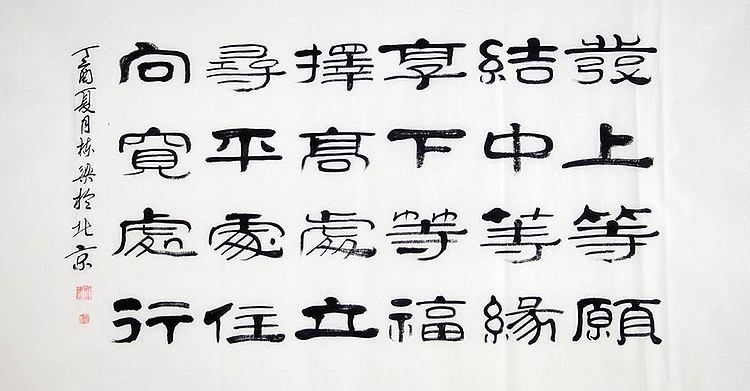 發上等願
結中等緣
享下等福
擇高處立
尋平處住
向寬處行
丁酉夏月棟樑於北京